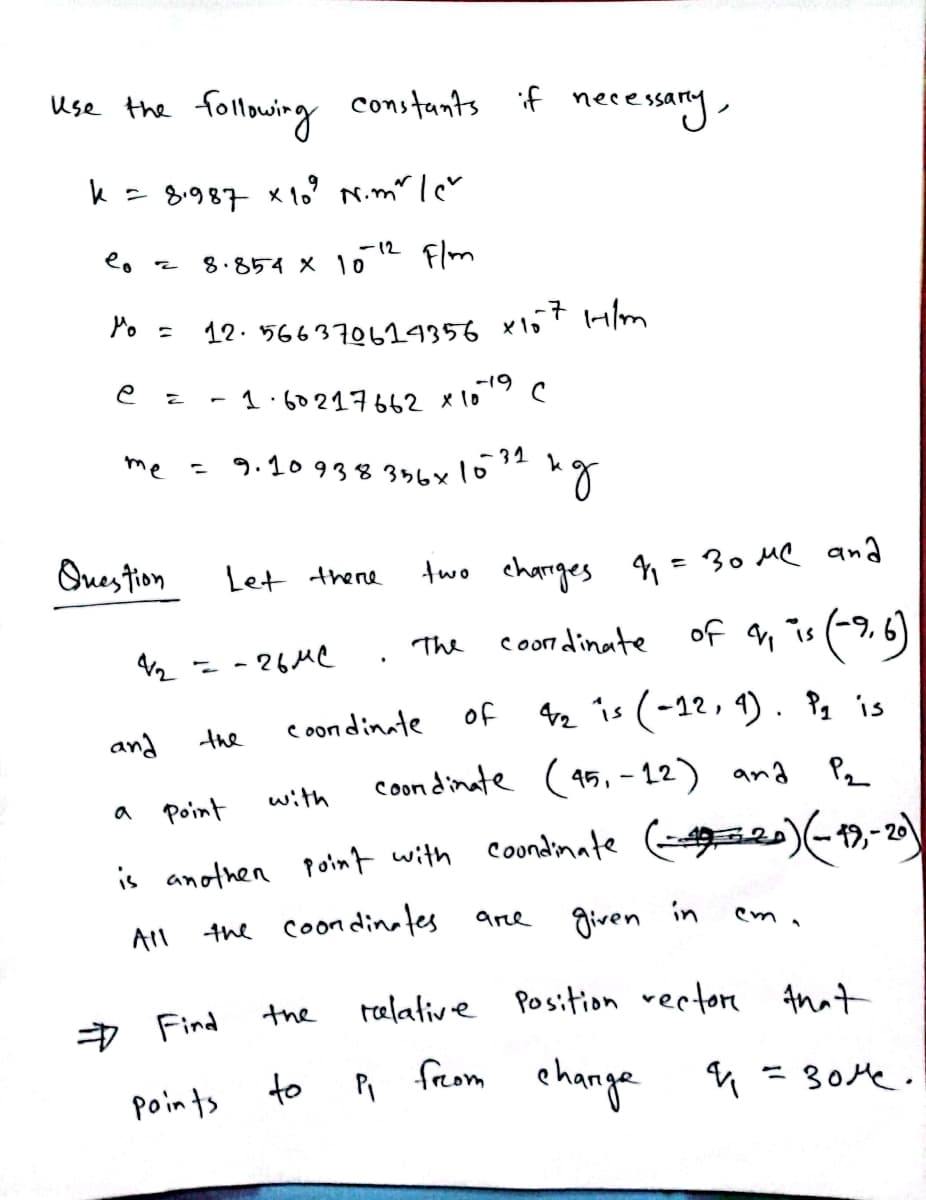 Use the following constants if necessary,
k = 8.987 × 10⁹ N.m²/c²
e₀ = 8.854 × 10⁻¹² F/m
μ₀ = 12.566370614356 × 10⁻⁷ H/m
e = - 1.60217662 × 10⁻¹⁹ C
me = 9.10938356 × 10⁻³¹ kg
Question Let there two charges q₁ = 30 μC and
q₂ = - 26 μC . The coordinate of q₁ is (-9, 6)
and the coordinate of q₂ is (-12, 4). P₁ is
a point with coordinate (45, -12) and P₂
is another point with coordinate (-49, -20)
All the coordinates are given in cm.
⇒ Find the relative position vector that
points to P₁ from charge q₁ = 30 μC.